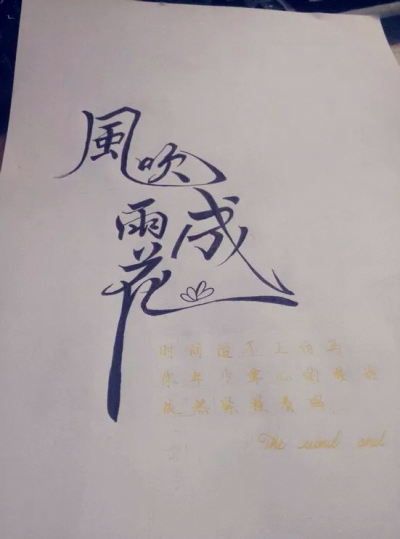 風吹
雨成
花
时间追不上白马
你年少掌心的梦话
依然紧握着吗
The wind and